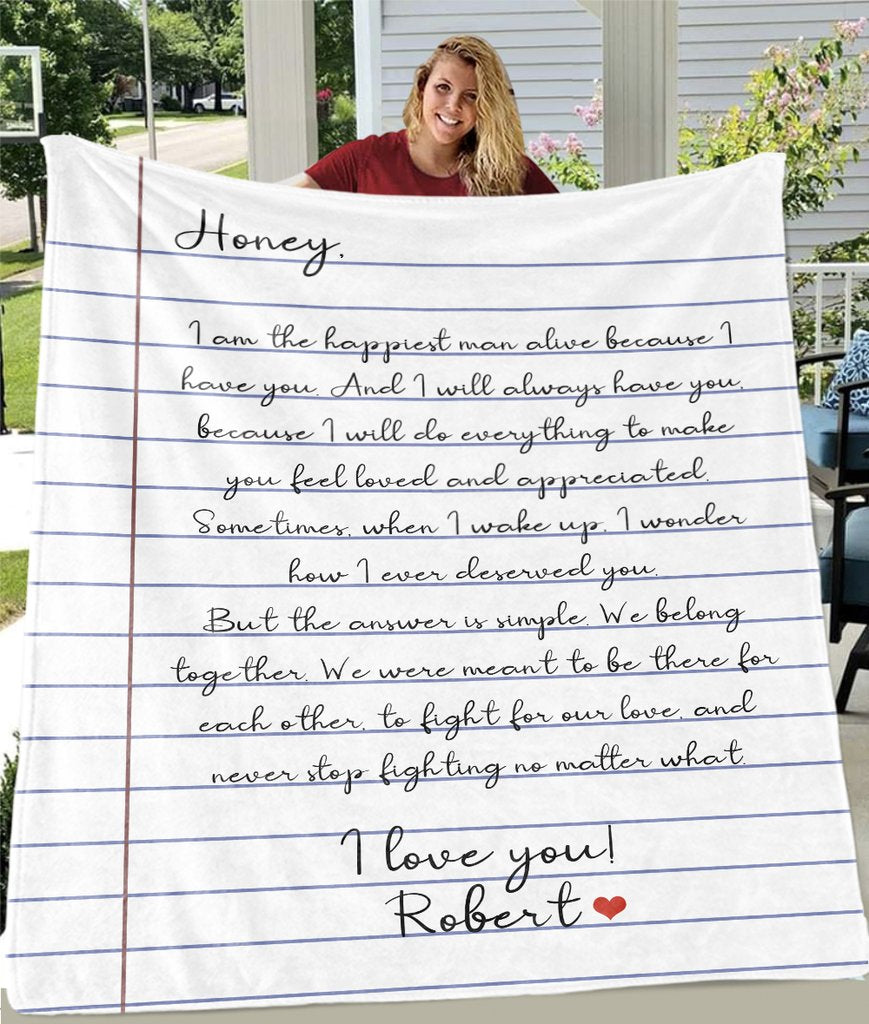 Honey,
I am the happiest man alive because I
have you. And I will always have you,
because I will do everything to make
you feel loved and appreciated.
Sometimes, when I wake up, I wonder
how I ever deserved you.
But the answer is simple. We belong
together. We were meant to be there for
each other, to fight for our love, and
never stop fighting no matter what.
I love you!
Robert